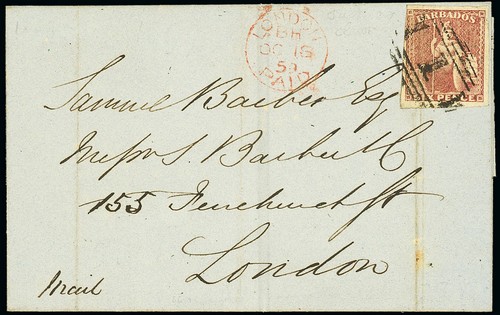 LONDON
BH
OC 18
59
PAID
BARBADOS
PENCE
Samuel Barber Esq
Messrs S. Barber & Co
155 Fenchurch St
London
Mail